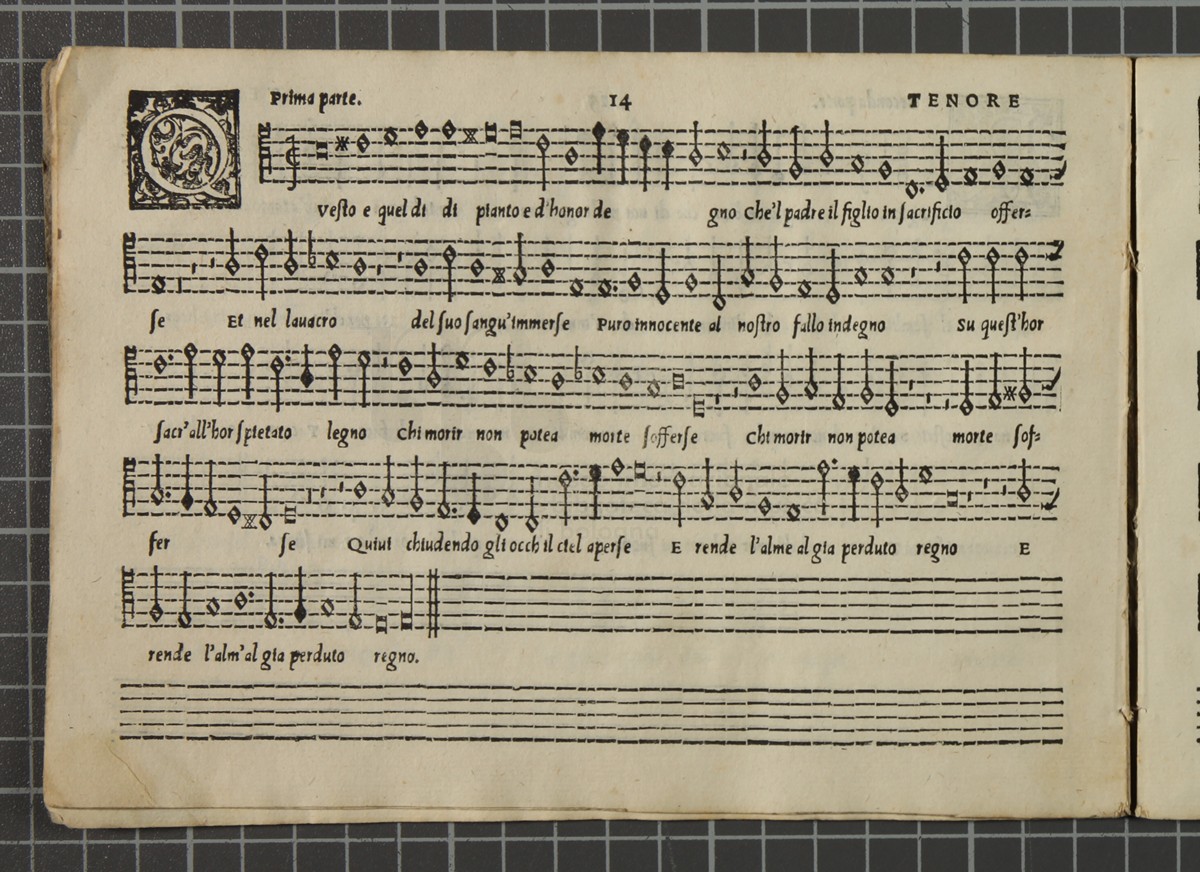 Prima parte. 14 TENORE
Q
vesto e quel di di pianto e d'honor de gno Che'l padre il figlio in sacrificio offer=
se Et nel lauacro del suo sangu'immerse Puro innocente al nostro fallo indegno Su quest'hor
sacr'all'hor spietato legno Chi morir non potea morte sofferse Chi morir non potea morte sof=
fer se Quiui chiudendo gli occh'il ciel aperse E rende l'alme al gia perduto regno E
rende l'alm'al gia perduto regno.